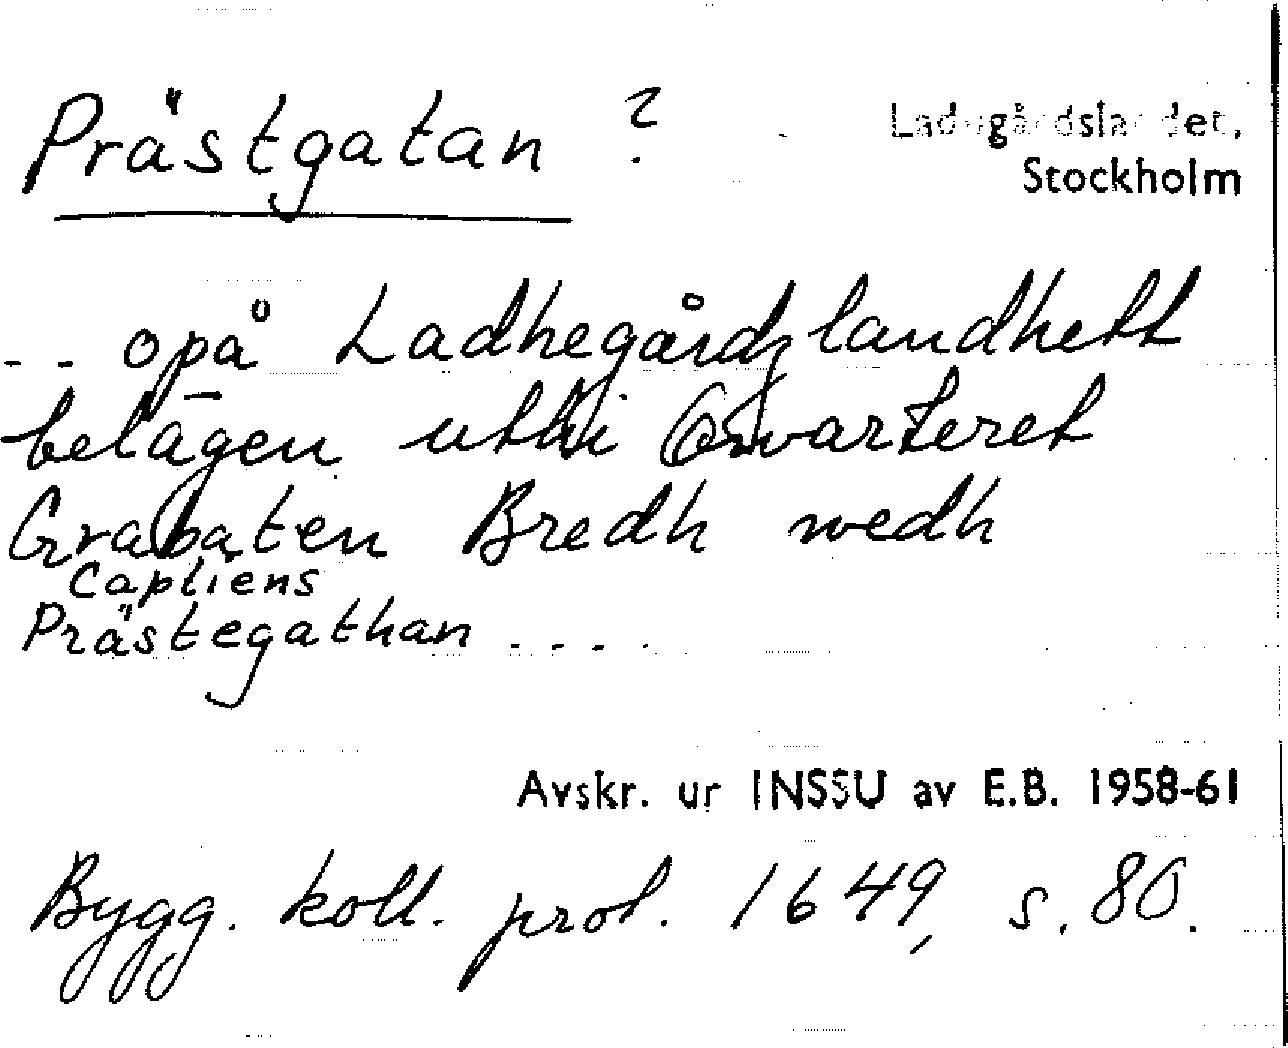 Prästgatan ?
Ladugårdslandet,
Stockholm
-- opå Ladhegårdzlandhett
belägen utthi Qwarteret
Grabaten Bredh wedh
Captiens
Prästegathan ----
Avskr. ur INSSU av E.B. 1958-61
Bygg. koll. prot. 1649, s. 80.